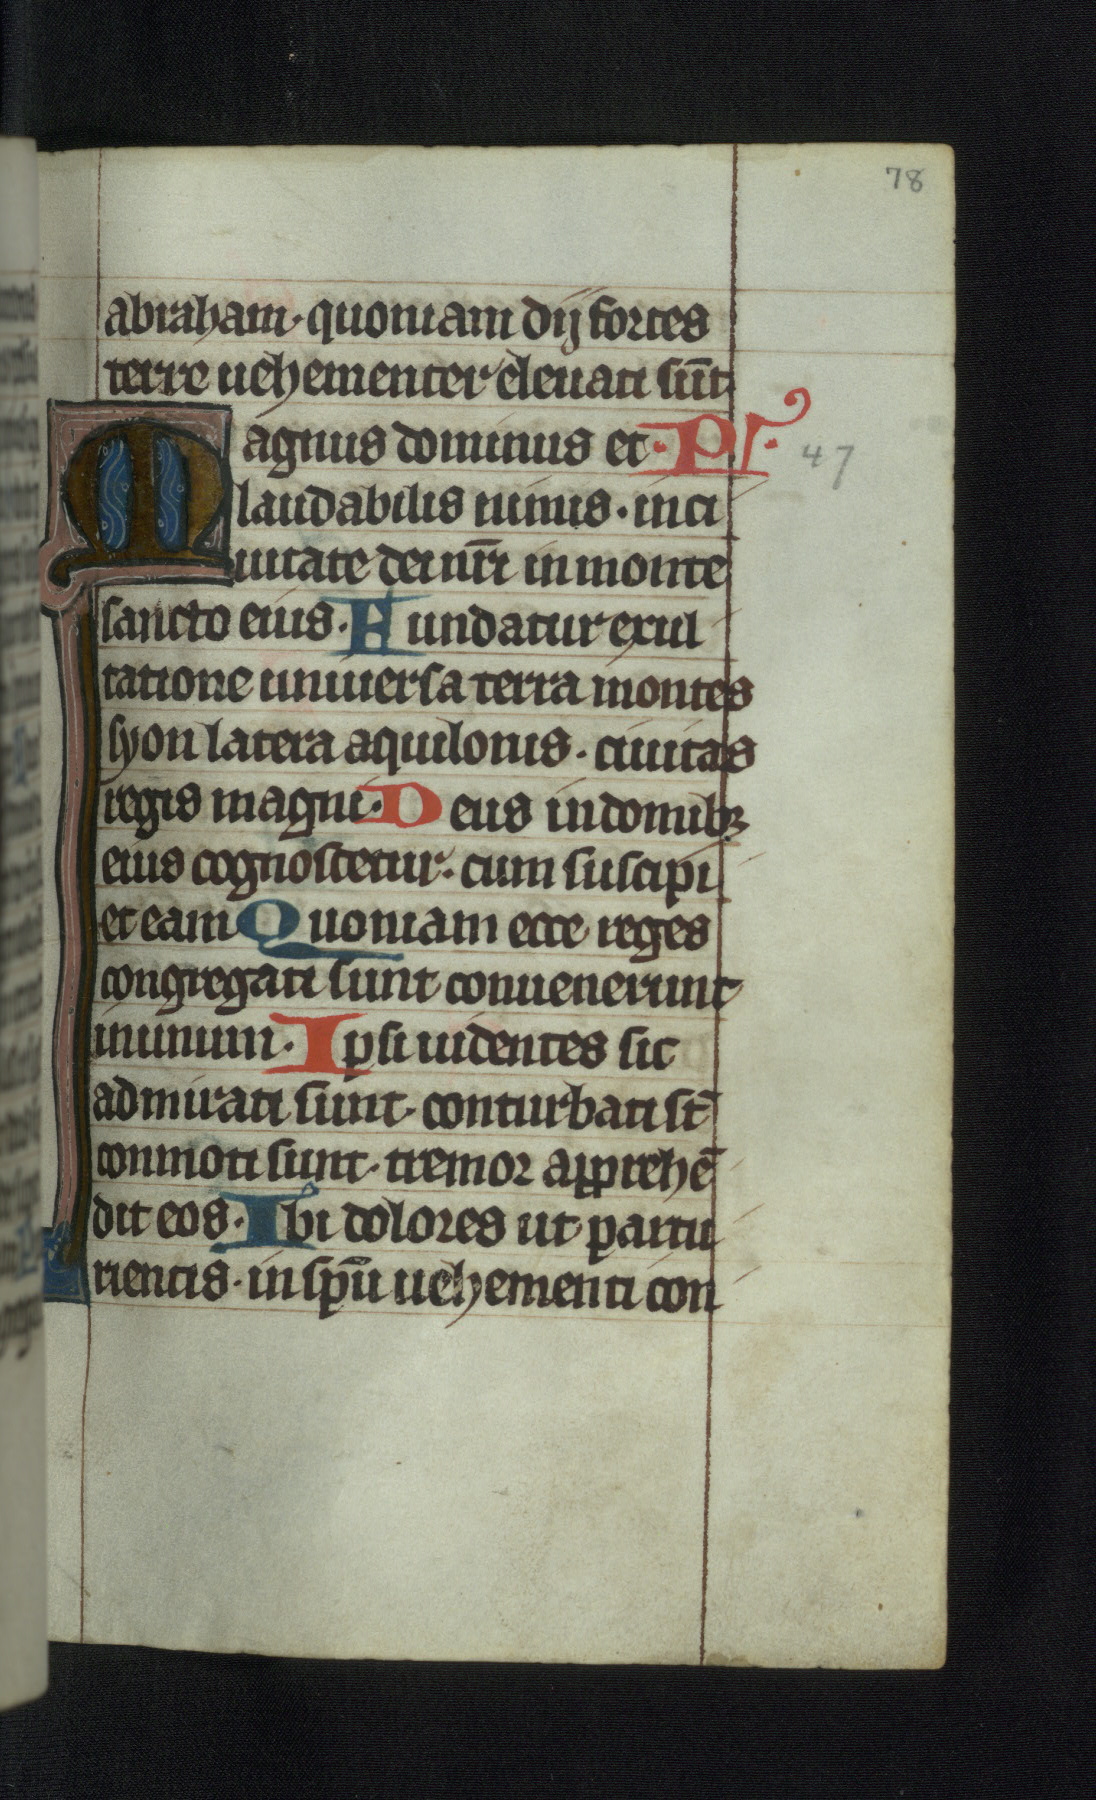 78
abraham · quoniam dij fortes
terre uehementer eleuati su̅t
Magnus dominus et · Ps ·
47
laudabilis nimis · in ci
uitate dei nr̅i in monte
sancto eius · Fundatur exul
tatione uniuersa terra montes
syon latera aquilonis · ciuitas
regis magni · Deus in domibꝫ
eius cognoscetur · cum suscipi
et eam Quoniam ecce reges
congregati sunt conuenerunt
inunum · Ipsi uidentes sic
admirati sunt · conturbati st̅
conmoti sunt · tremor apprehe̅
dit eos · Ibi dolores ut partu
rientis · in spu̅ uehementi con